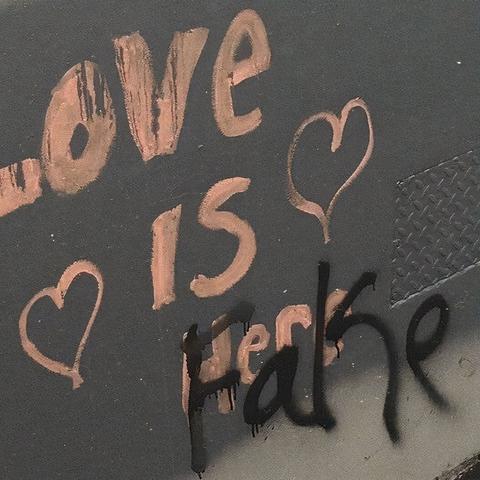 Love
is
Here
False